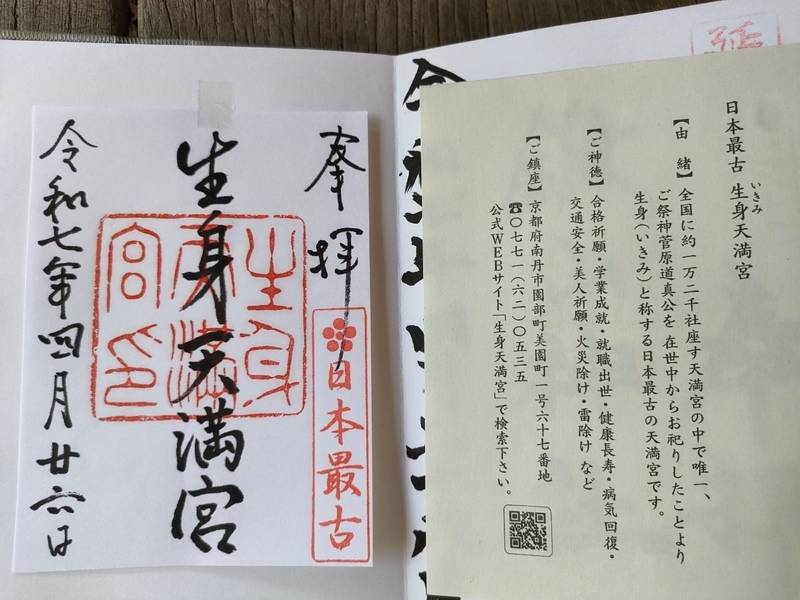 奉拝
日本最古
生身天満宮
生身天満宮印
令和七年四月廿六日
日本最古 生身天満宮
いきみ
【由 緒】全国に約一万二千社座す天満宮の中で唯一、
ご祭神菅原道真公を 在世中からお祀りしたことより
生身(いきみ)と称する日本最古の天満宮です。
【ご神徳】合格祈願・学業成就・就職出世・健康長寿・病気回復・
交通安全・美人祈願・火災除け・雷除け など
【ご鎮座】京都府南丹市園部町美園町一号六十七番地
☎〇七七一(六二)〇五三五
公式WEBサイト「生身天満宮」で検索下さい。